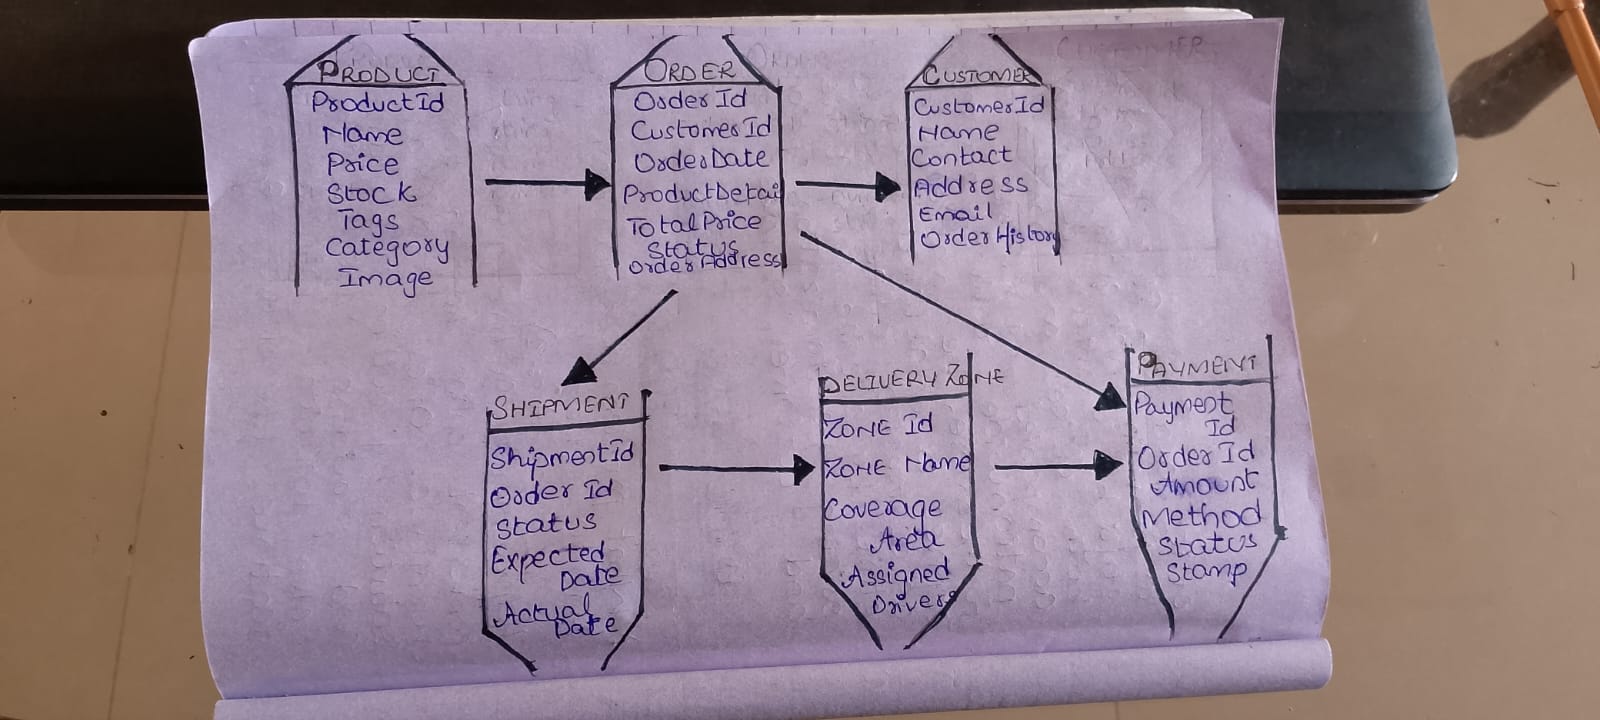 PRODUCT
ProductId
Name
Price
Stock
Tags
Category
Image
ORDER
Order Id
Customer Id
OrderDate
ProductDetail
Total Price
Status
Order Address
CUSTOMER
CustomerId
Name
Contact
Address
Email
Order History
SHIPMENT
Shipment Id
Order Id
Status
Expected
Date
Actual
Date
DELIVERY ZONE
ZONE Id
ZONE Name
Coverage
Area
Assigned
Drivers
PAYMENT
Payment
Id
Order Id
Amount
Method
Status
Stamp